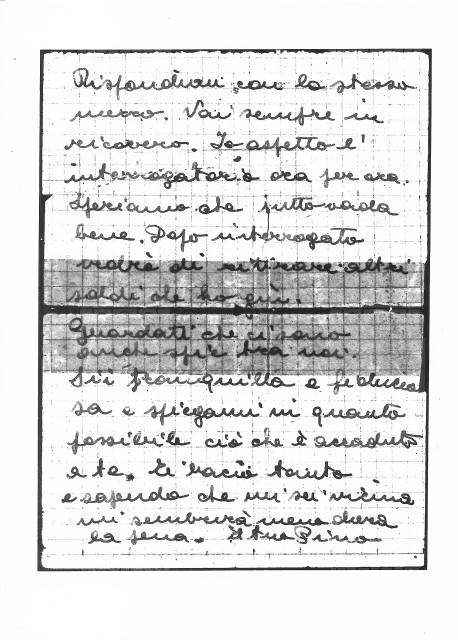 Rispondimi con lo stesso
mezzo. Vai sempre in
ricovero. Io aspetto l'
interrogatorio ora per ora.
Speriamo che tutto vada
bene. Dopo interrogato
vedrò di ritirare altri
soldi che ho giù.
Guardati che ci sono
anche spie tra noi.
Sii tranquilla e fiducio
sa e spiegami in quanto
possibile ciò che è accaduto
a te. Ti bacio tanto
e sapendo che mi sei vicina
mi sembrerà meno dura
la pena. Il tuo Pino